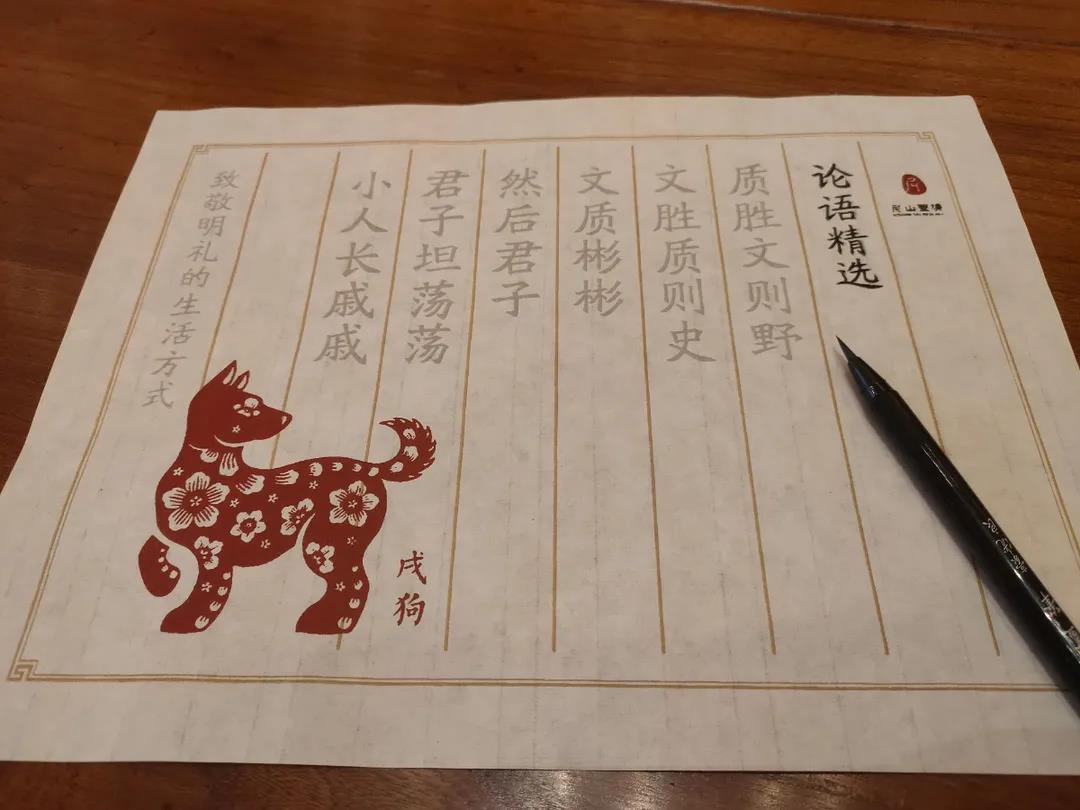 论语精选
质胜文则野
文胜质则史
文质彬彬
然后君子
君子坦荡荡
小人长戚戚
致敬明礼的生活方式
戌狗